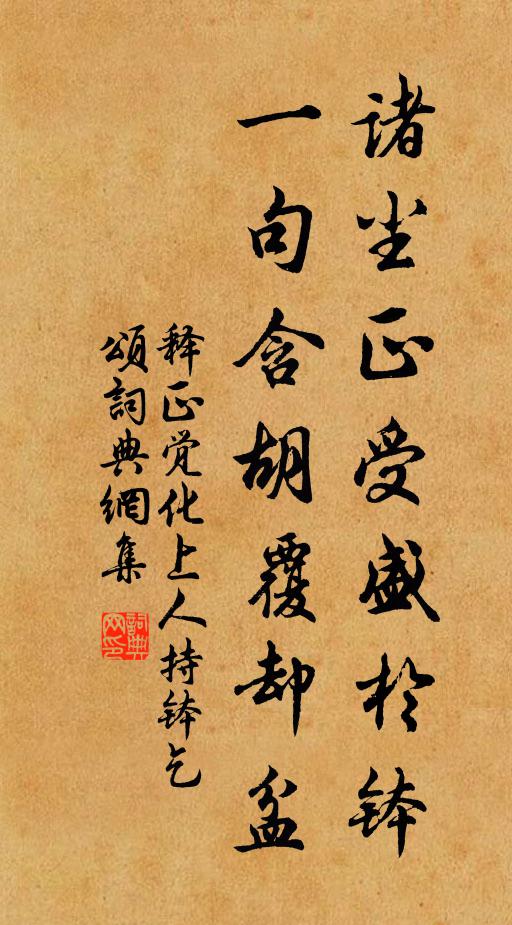 诸尘正受盛於钵
一句含胡覆却盆
释正觉化上人持钵乞
颂词典網集
詞典网印